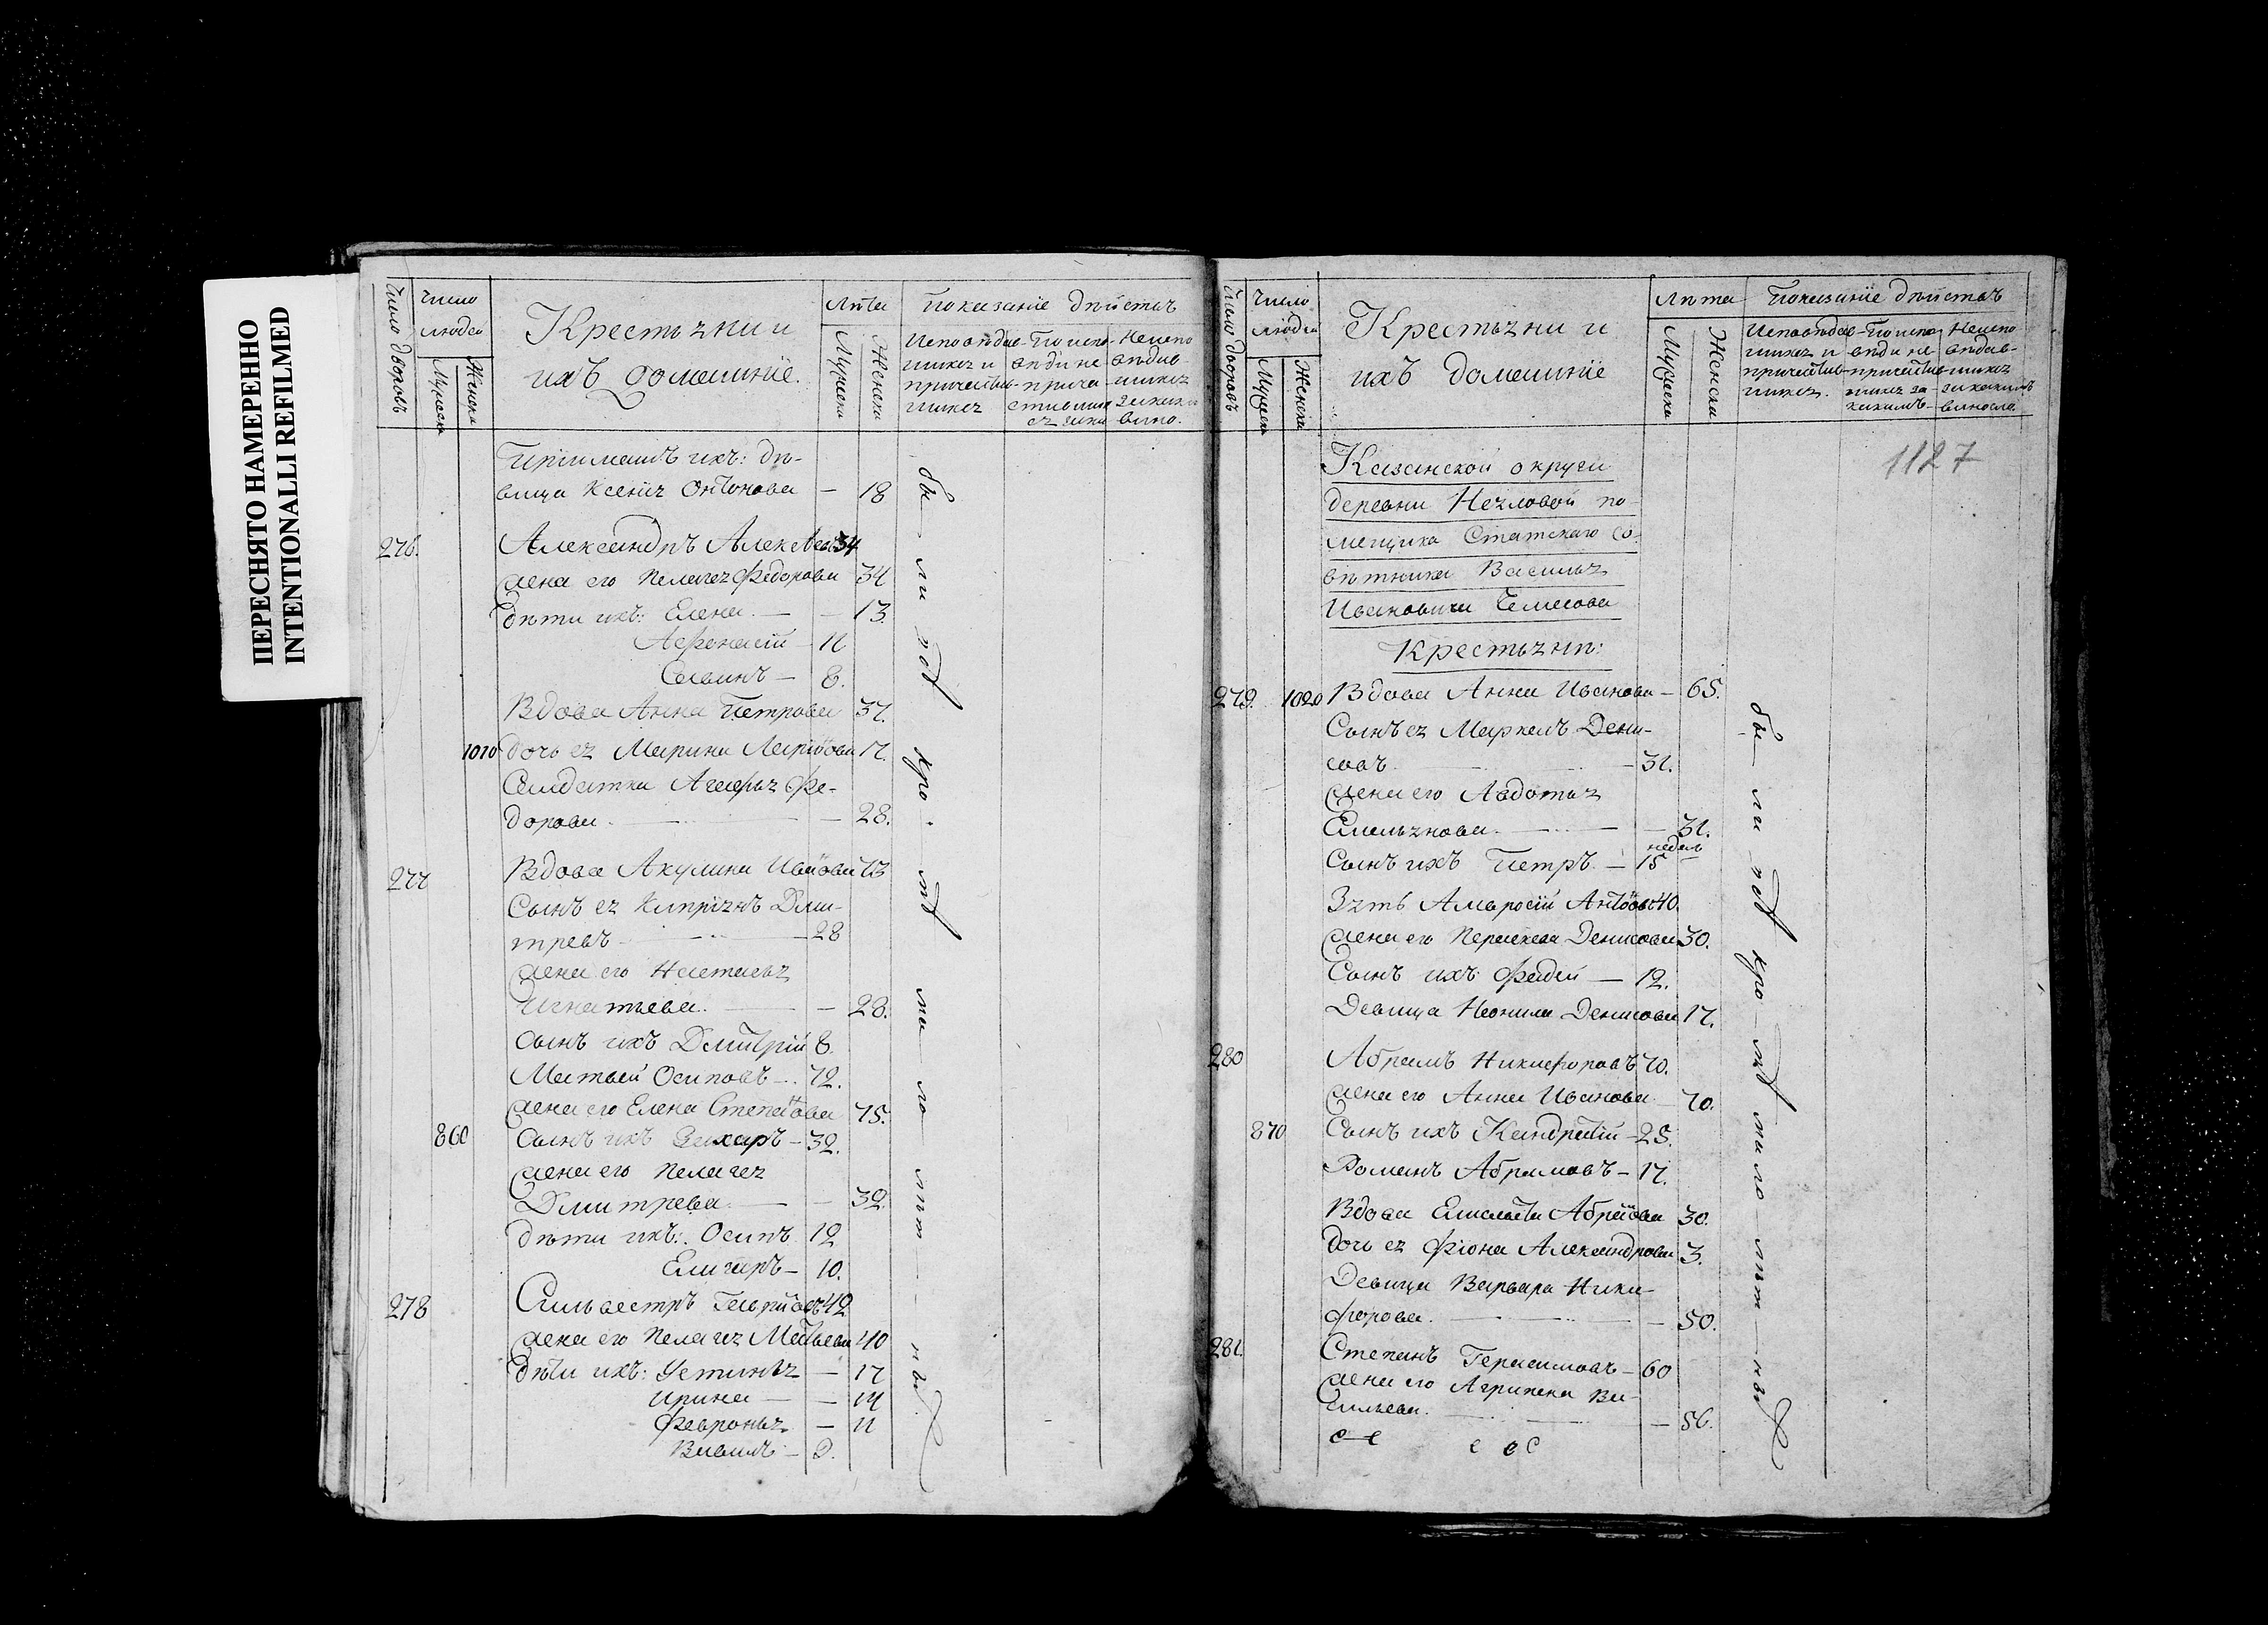 ПЕРЕСНЯТО НАМЕРЕННО
INTENTIONALLI REFILMED
Число дворовъ
Число людей
Мужеска
Женска
Крестьяни и
ихъ домашнїе.
Лѣта
Мужеска
Женска
Показанїе дѣйствъ
Исповѣдав-
шихся и
причастив-
шихся
По испо-
вѣди не
прича-
стивших
ся
Неиспо
вѣдав-
шихся
Пріимашъ ихъ: дѣ-
вица Ксенія Онтонова — 18
276. Александръ Алексѣевъ 34
жена его Пелагея Федорова 34
дѣти ихъ: Елена — 13.
Афонасій — 11
Савинъ — 8.
Вдова Анна Петрова 37.
1010 дочь ея Марина Ларіонова 17.
Салдатка Агафья Фе-
дорова — 28.
277 Вдова Акулина Иванова 73
Сынъ ея Кипріянъ Дми-
тревъ — 28
жена его Настасья
Игнатьева — 28.
сынъ ихъ Дмитрій 8.
Матвей Осиповъ — 72.
жена его Елена Степанова 75.
860 Сынъ ихъ Захаръ — 32.
жена его Пелагея
Дмитрева — 32.
дѣти ихъ: Осипъ 12
Елизаръ — 10.
278 Сильвестръ Гаврилов 42
жена его Пелагея Матвеева 40
дѣти ихъ: Устинья — 17
Ирина — 14
Февронья — 11
Вавилъ — 2.
бы ли во кро мѣ ма ло лѣт ны
Число дворовъ
Число людей
Мужеска
Женска
Крестьяни и
ихъ домашнїе
Лѣта
Мужеска
Женска
Показанїе дѣйствъ
Исповѣдав-
шихся и
причастив-
шихся.
По испо-
вѣди не
причастив-
шихся за
какимъ-
Неиспо
вѣдав-
шихся
за какимъ
виномъ
1127
Казанской округи
деревни Неяловой по-
мещика Статскаго со-
вѣтника Василья
Ивановича Чемесова
Крестьяни:
279. 1020 Вдова Анна Иванова — 65.
Сынъ ея Маркелъ Дени-
совъ — 31.
жена его Авдотья
Емельянова — 31.
недель
Сынъ ихъ Петръ — 15
Зять Амвросій Антонов 40.
жена его Параскева Денисова 30.
Сынъ ихъ Фадей — 12.
Девица Неонила Денисова 17.
280 Абрамъ Никифоровъ 70.
жена его Анна Иванова — 70.
870 Сынъ ихъ Кандратій — 25.
Романъ Абрамовъ — 17.
Вдова Елисавета Абрамова 30.
дочь ея Фіона Александрова 3.
Девица Варвара Ники-
форова — 50.
281. Степанъ Герасимовъ — 60
жена его Агрипена Ва-
сильева — 56.
бы ли во кро мѣ мало лѣт ны